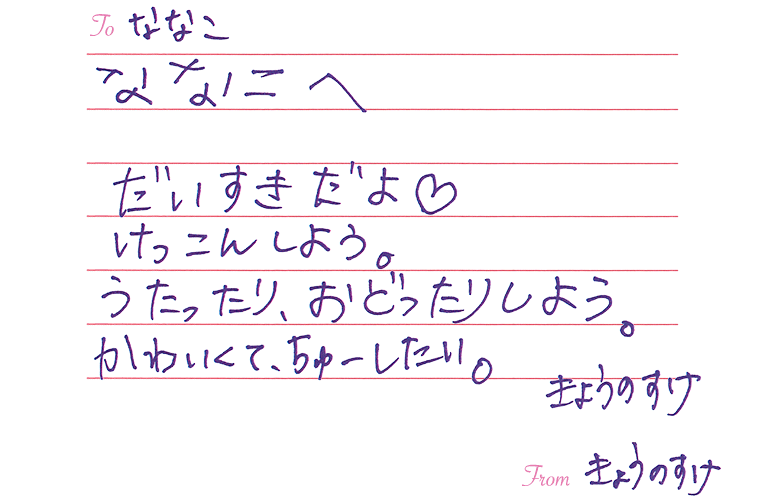 To ななこ
ななこへ
だいすきだよ♡
けっこんしよう。
うたったり、おどったりしよう。
かわいくて、ちゅーしたい。
きょうのすけ
From きょうのすけ